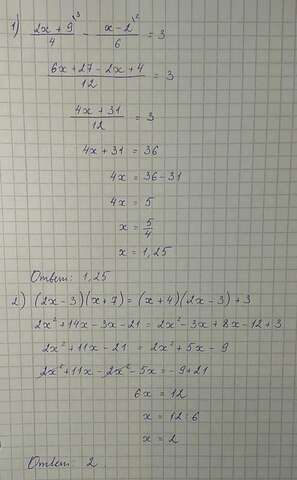 1) (2x + 9)/4 ³⁾ - (x - 2)/6 ²⁾ = 3
(6x + 27 - 2x + 4)/12 = 3
(4x + 31)/12 = 3
4x + 31 = 36
4x = 36 - 31
4x = 5
x = 5/4
x = 1,25
Ответ: 1,25
2) (2x - 3)(x + 7) = (x + 4)(2x - 3) + 3
2x² + 14x - 3x - 21 = 2x² - 3x + 8x - 12 + 3
2x² + 11x - 21 = 2x² + 5x - 9
2x² + 11x - 2x² - 5x = -9 + 21
6x = 12
x = 12 : 6
x = 2
Ответ: 2